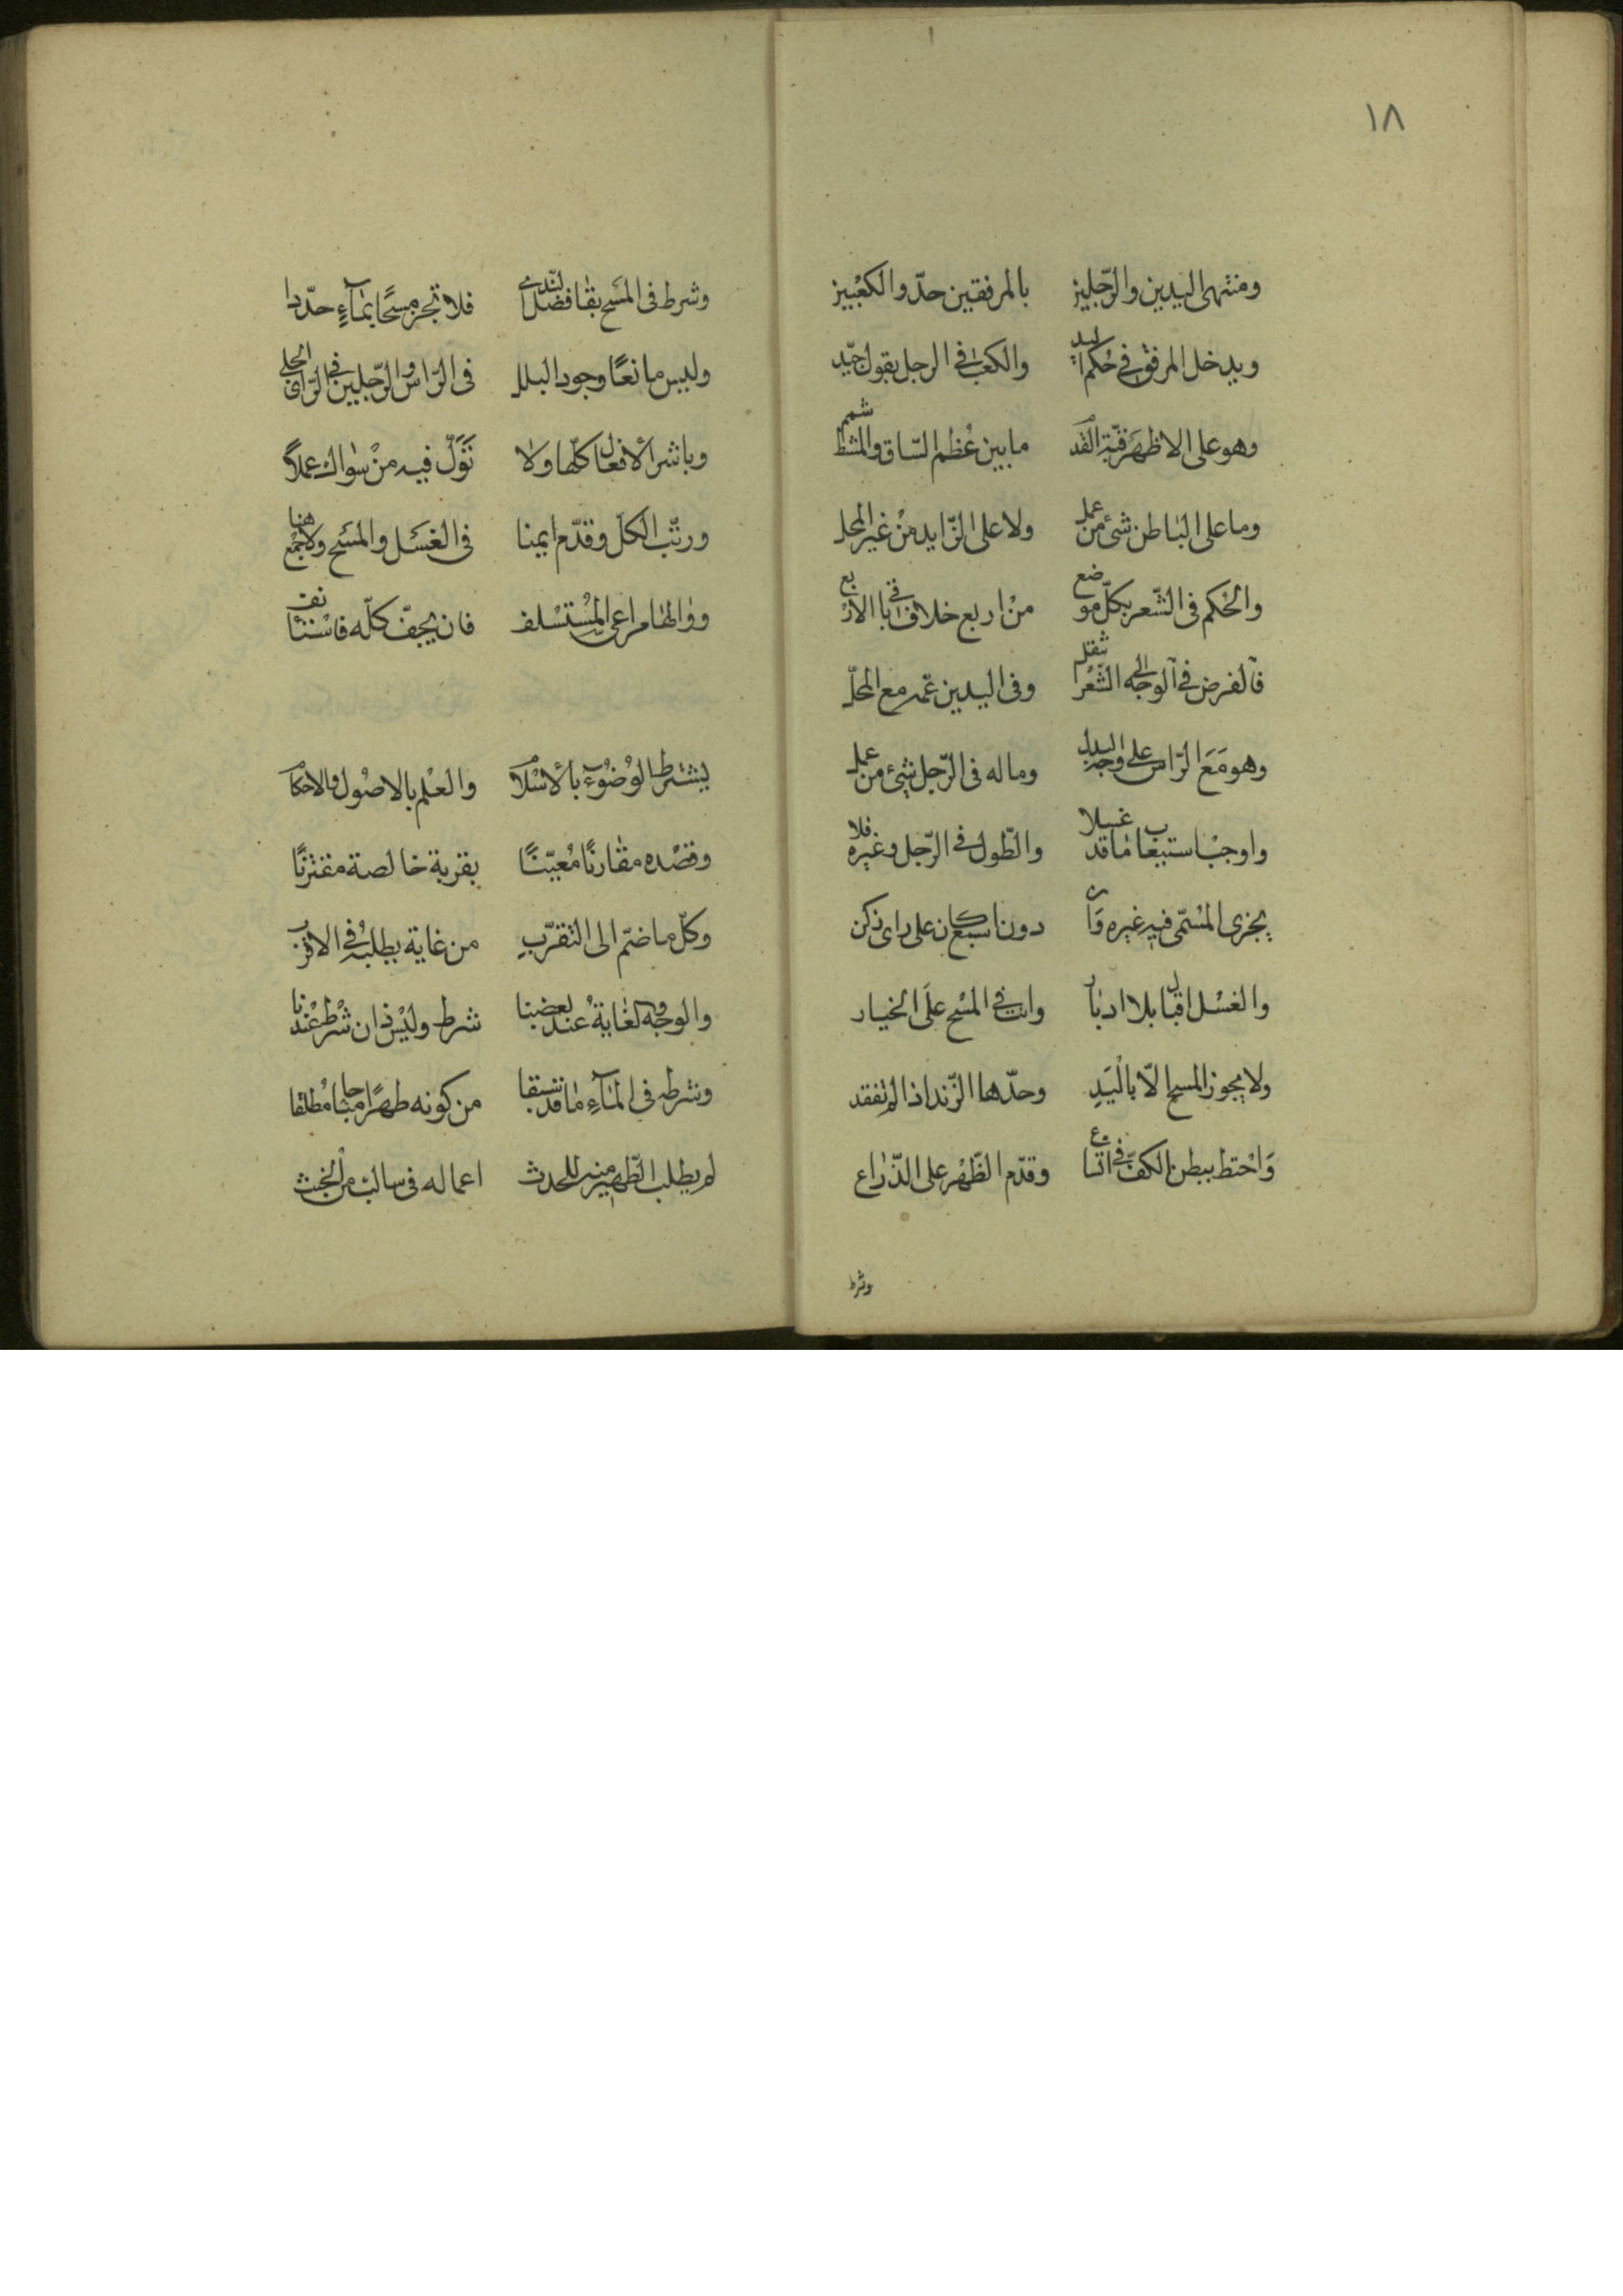 ١٨
ومنتهى اليدين والرّجلين بالمرفقين حدّ والكعبين
ويدخل المرفق في حكم اليد والكعب في الرجل بقول جيّد
وهو على الاظهر قبّة القدم ما بين عظم السّاق والمشط
وما على الباطن شئ من عمل ولا على الزّايد من غير المحل
والحكم في الشّعر بكلّ موضع من اربع خلاف باقي الاربع
فالفرض في الوجه الى الشّعر وفي اليدين عمّه مع المحلّ
وهو مع الرّاس على وجه البدل وما له في الرّجل شئ من عمل
واوجب استيعاب ما قد غسلا والطّول في الرّجل وغيره فلا
يجزى المسمّى فيه غيره وان دون اسبع كان على راى زكن
والغسل اقبال بلا ادبار وانت في المسح على الخيار
ولا يجوز المسح الّا باليد وحدّها الزّند اذا لم تفقد
واحتط ببطن الكفّ في اتّساع وقدّم الظّهر على الذّراع
وشرط
وشرط في المسح بقا فضل النّدى فلا تجز مسحًا بماءٍ جدّدا
وليس مانعًا وجود البلل في الرّاس والرّجلين في الرّاى الجلي
وباشر الافعال كلّها ولا تولّ فيه من سواك عملًا
ورتّب الكلّ وقدّم ايمنا في الغسل والمسح ولا جمع هنا
ووالها مراعى المستسلف فان يجفّ كلّه فاستنأنف
يشترط الوضوء بالاسلام والعلم بالاصول والاحكام
وقصده مقارنًا معيّنًا بقربة خالصة مقترنًا
وكلّ ما ضمّ الى التقرّب من غاية يطلبه في الاقرب
والوجه كغاية عند بعضنا شرط وليس ذان شرط عندنا
وشرطه في الماء ما قد سبقا من كونه طهرًا مباحا مطلقا
لم يطلب التّطهير منه للحدث اعماله في سالب من الخبث